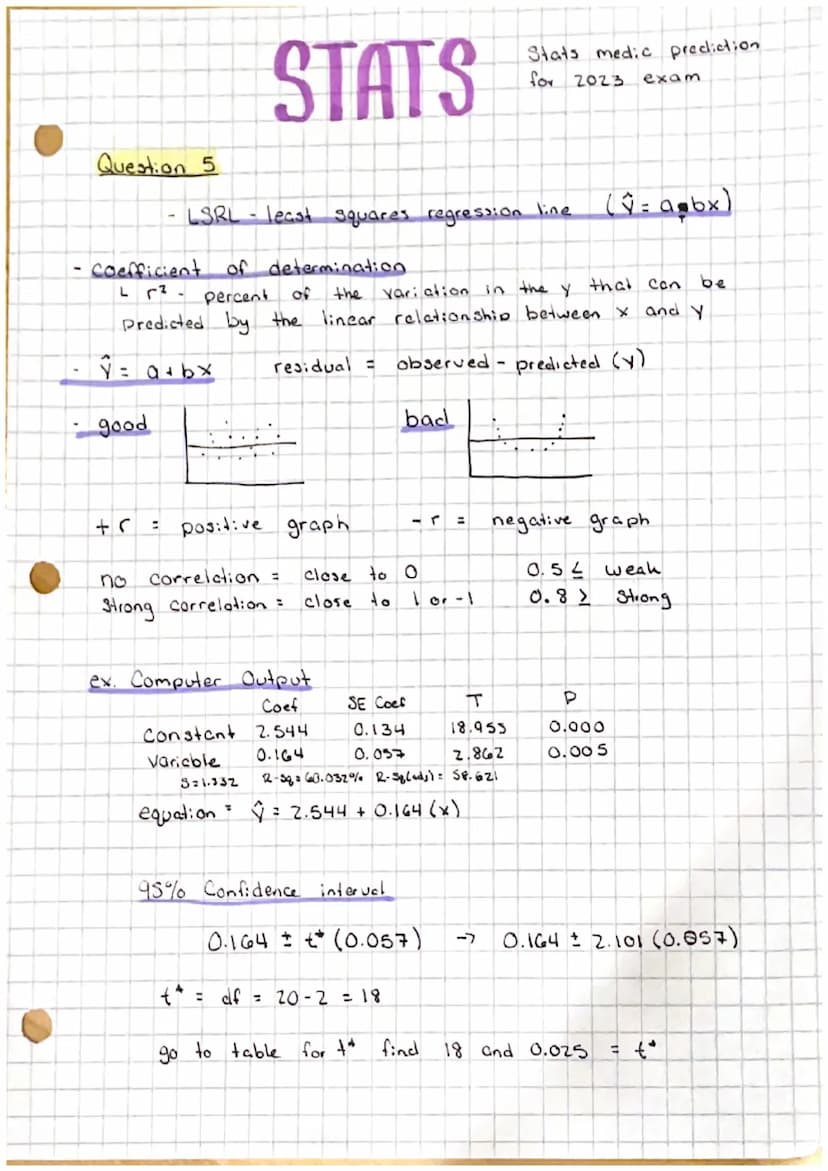 STATS
Stats medic prediction
for 2023 exam
Question 5
- LSRL - least squares regression line (ŷ = a+bx)
- coefficient of determination
↳ r² - percent of the variation in the y that can be
predicted by the linear relationship between x and y
- ŷ = a+bx residual = observed - predicted (y)
- good bad
+r = positive graph -r = negative graph
no correlation = close to 0 0.5 ≤ weak
Strong correlation = close to 1 or -1 0.8 ≥ Strong
ex. Computer Output
Coef SE Coef T P
Constant 2.544 0.134 18.955 0.000
Variable 0.164 0.057 2.862 0.005
S=1.332 R-Sq = 60.032% R-Sq(adj) = 58.621
equation = ŷ = 2.544 + 0.164 (x)
95% Confidence interval
0.164 ± t* (0.057) → 0.164 ± 2.101 (0.057)
t* = df = 20-2 = 18
go to table for t* find 18 and 0.025 = t*